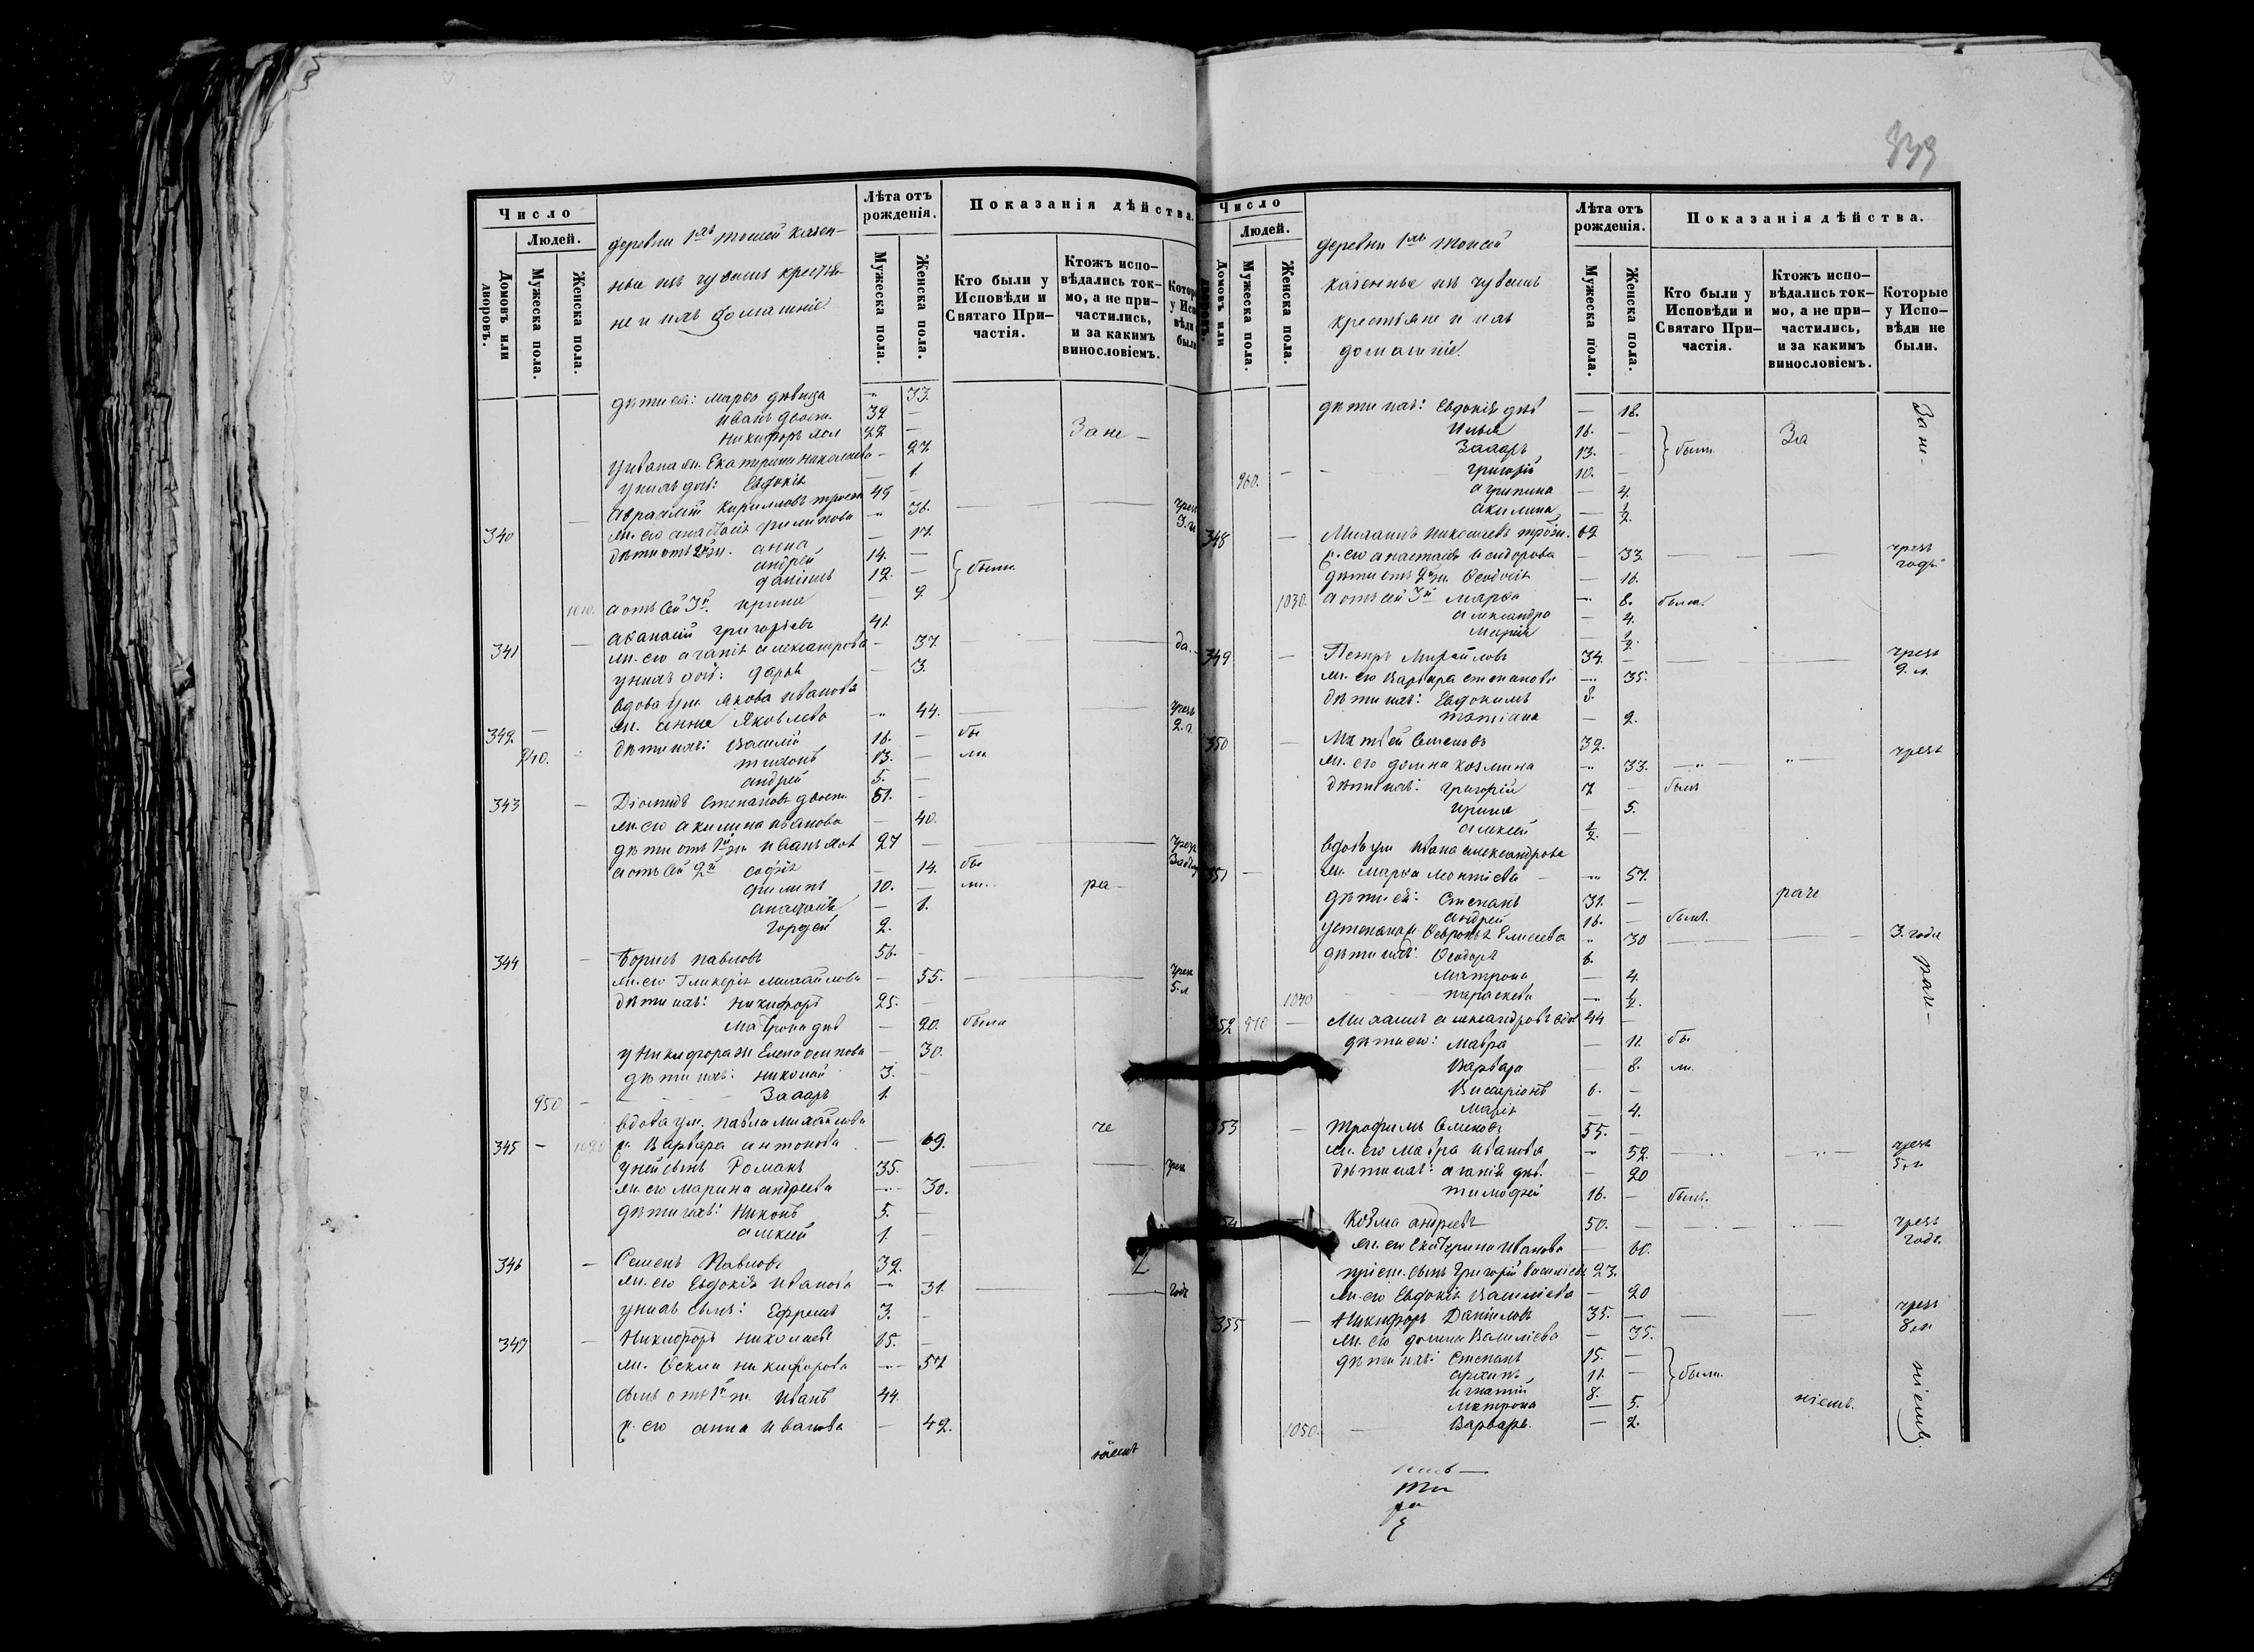 Число
Людей.
Домовъ или дворовъ.
Мужеска пола.
Женска пола.
деревни казен-
ные изъ чувашъ крестья-
не и ихъ домашніе
Лѣта отъ рожденія.
Мужеска пола.
Женска пола.
Показанія дѣйства.
Кто были у Исповѣди и Святаго Причастія.
Ктожъ исповѣдались токмо, а не причастились, и за какимъ винословіемъ.
дѣти ея: Марѳа дѣвица — 33.
Иванъ двоеж. 32 —
Никифоръ хол 22 —
Зане —
У Ивана ж. Екатерина Николаева — 27
у нихъ доч: Евдокія — 1
340 Авраамій Кирилловъ троеж 49 —
ж. его Анастасія Филипова — 36.
дѣти отъ 2й ж. Анна — 17.
Андрей 14. —
Даніилъ 12. — были
1010. а отъ сей 3й Ирина — 2
341 Аѳанасій Григорьевъ 41
ж. его Агапія Александрова — 37. да.
у нихъ доч: Дарья — 3.
вдова ум. Якова Иванова
342 ж. Анна Яковлева — 44. чрезъ 2. г.
940. дѣти ихъ: Василій 16. — бы
Тихонъ 13. — ли
Андрей 5. —
343 Діомидъ Степановъ двоеж. 51. —
ж. его Акилина Иванова — 40.
дѣти отъ 1й ж Иванъ хол 27 —
а отъ сей 2й Софія — 14. бы
Филипъ 10. — ли. ра —
Анастасія — 6.
Гордей 2.
344 Борисъ Павловъ 56. —
ж. его Гликерія Михайлова — 55. чрез 5. л
дѣти ихъ: Никифоръ 25. —
Матрона дѣв — 20. была
у Никифора ж Елена Осипова — 30.
дѣти ихъ: Николай 3. —
950 — Захаръ 1
вдова ум. Павла Михайлова
345 — 1020 ж. Варвара Антонова — 69. че
у ней сынъ Романъ 35. чрез
ж. его Марина Андреева — 30.
дѣти ихъ: Никонъ 5. —
Алексей 1. —
346 — Семенъ Павловъ 32.
ж. его Евдокія Иванова — 31. годъ
у нихъ сынъ: Ефремъ 3. —
347 — Никифоръ Николаевъ 65. —
ж. Ѳекла Никифорова — 57
сынъ отъ 1й ж. Иванъ 44.
ж. его Анна Иванова — 42.
ніемъ
339
Число
Людей.
Домовъ или дворовъ.
Мужеска пола.
Женска пола.
деревни
казенные изъ чувашъ
крестьяне и ихъ
домашніе.
Лѣта отъ рожденія.
Мужеска пола.
Женска пола.
Показанія дѣйства.
Кто были у Исповѣди и Святаго Причастія.
Ктожъ исповѣдались токмо, а не причастились, и за какимъ винословіемъ.
Которые у Исповѣди не были.
дѣти ихъ: Евдокія дѣв — 18. За не-
Илья 16. —
Захаръ 13. — были За
960. — Григорій 10. —
Агрипина — 4.
Акилина — ½.
348 — Михаилъ Николаевъ троеж. 62
ж. его Анастасія Исидорова — 33. чрезъ годъ
дѣти отъ 2й ж. Ѳеодосія — 16.
1030. а отъ сей 3й Марѳа — 8. была.
Александра — 4.
Марія — ½.
349 — Петръ Михайловъ 34. — чрезъ 2. л.
ж. его Варвара Степанова — 35.
дѣти ихъ: Евдокимъ 8.
Татіана — 2.
350 — Матвей Семеновъ 32. чрезъ
ж. его Домна Козмина — 33.
дѣти ихъ: Григорій 7 — былъ
Ирина — 5.
Алексей ½. —
вдова ум Ивана Александрова
351 — ж. Марѳа Леонтіева — 57.
дѣти ея: Степанъ 31. — раче
Андрей 16. — былъ.
у Степана ж Ѳевронья Елисеева — 30 3. года
дѣти ихъ: Ѳеодоръ 6.
Матрона — 4. рач-
1040 — Параскева — ½.
352 970 — Михаилъ Александровъ вдов 44 —
дѣти его: Мавра — 11. бы
Варвара — 8. ли.
Висаріонъ 6. —
Марія — 4.
353 — Трофимъ Семеновъ 55. —
ж. его Мавра Иванова — 52. чрезъ 5. л
дѣти ихъ: Агапія дѣв. — 20
Тимофей 16. — былъ.
354 — Козма Андреевъ 50. — чрезъ годъ.
ж. его Екатерина Иванова — 60.
пріем. сынъ Григорій Васильевъ 23.
ж. его Евдокія Василіева — 20
355 — Никифоръ Даниловъ 35. — чрезъ 8. л
ж. его Домна Василіева — 35.
дѣти ихъ: Степанъ 15. —
Архипъ 11. — были.
Игнатій 8.
Матрона — 5. ніемъ. ніемъ.
1050. — Варвара. — 2.